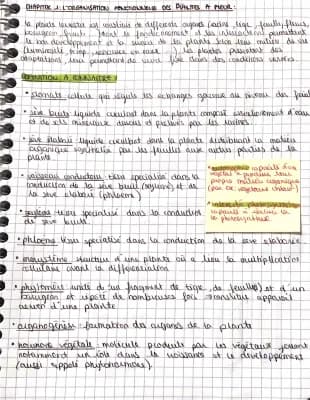 CHAPITRE 1: L'ORGANISATION FONCTIONNELLE DES PLANTES À FLEUR:
la plante terrestre est constituée de différents organes (racine, tige, feuilles, fleurs,
bourgeon, fruit). Dont le fonctionnement et les interactions permettent
le bon développement et la survie de la plante selon leur milieu de vie
les plantes présentent des
adaptations, leur permettant de vivre fixée dans des conditions variées.
À CONNAÎTRE:
• stomate cellule qui régule les échanges gazeux au niveau des feuilles
• sève brute liquide circulant dans la plante composé essentiellement d'eau
et de sels minéraux puisés et prélevés par les racines.
• sève élaborée liquide circulant dans la plante distribuant la matière
organique synthétisée par les feuilles aux autres parties de la
plante.
• vaisseau conducteur tissu spécialisé dans la
conduction de la sève brute (xylème) et de
la sève élaborée (phloème)
• xylème tissu spécialisé dans la conduction
de sève brute.
• autotrophie capacité d'un
végétal à produire leur
propre matière organique
• capacité à réaliser la
photosynthèse
• phloème tissu spécialisé dans la conduction de la sève élaborée
• méristème structure d'une plante où a lieu la multiplication
cellulaire avant la différenciation
• phytomère unité d'un fragment de tige, de feuille(s) et d'un
bourgeon et répété de nombreuses fois constitue appareil
aérien d'une plante
• organogénèse: formation des organes de la plante
• hormone végétale: molécule produite par les végétaux jouant
notamment un rôle dans la croissance et le développement
(aussi appelé phytohormones).